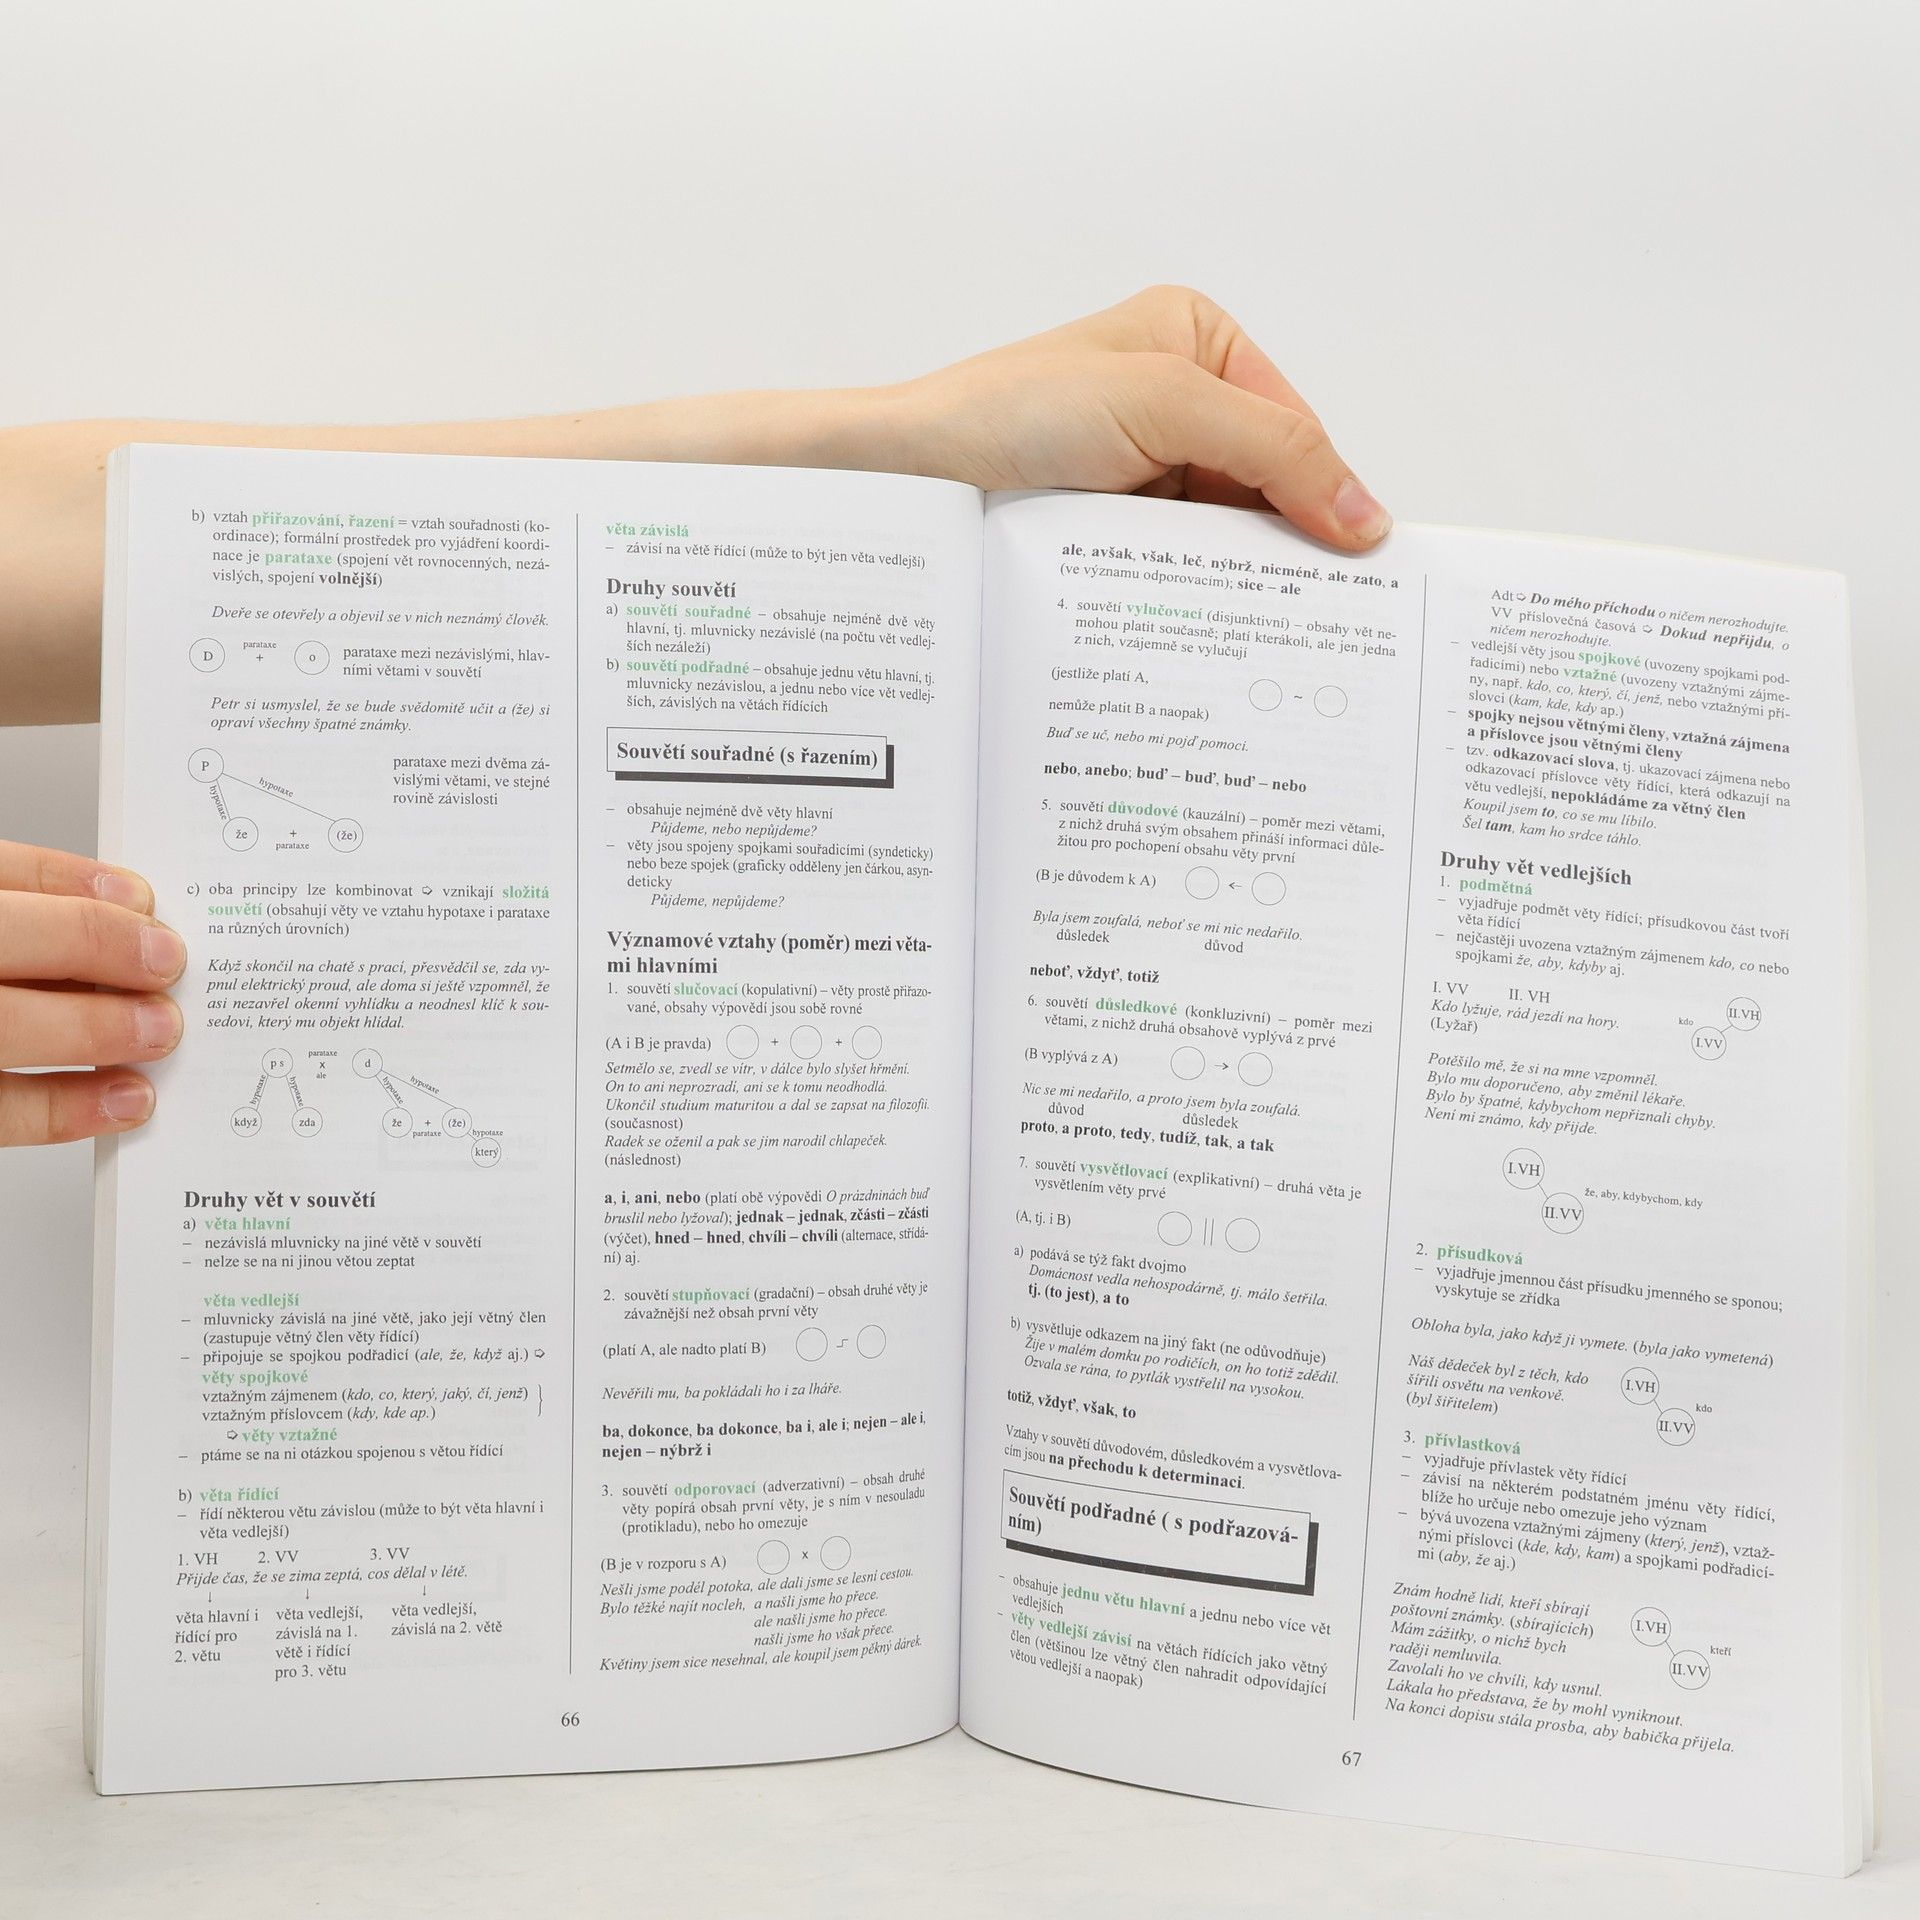 b) vztah přiřazování, řazení = vztah souřadnosti (ko-
ordinace); formální prostředek pro vyjádření koordi-
nace je parataxe (spojení vět rovnocenných, nezá-
vislých, spojení volnější)
Dveře se otevřely a objevil se v nich neznámý člověk.
D parataxe + o
parataxe mezi nezávislými, hlav-
ními větami v souvětí
Petr si usmyslel, že se bude svědomitě učit a (že) si
opraví všechny špatné známky.
P
hypotaxe
hypotaxe
že + (že)
parataxe
parataxe mezi dvěma zá-
vislými větami, ve stejné
rovině závislosti
c) oba principy lze kombinovat ➪ vznikají složitá
souvětí (obsahují věty ve vztahu hypotaxe i parataxe
na různých úrovních)
Když skončil na chatě s prací, přesvědčil se, zda vy-
pnul elektrický proud, ale doma si ještě vzpomněl, že
asi nezavřel okenní vyhlídku a neodnesl klíč k sou-
sedovi, který mu objekt hlídal.
p s parataxe x ale d
hypotaxe hypotaxe hypotaxe hypotaxe
když zda že + (že)
parataxe hypotaxe
který
Druhy vět v souvětí
a) věta hlavní
– nezávislá mluvnicky na jiné větě v souvětí
– nelze se na ni jinou větou zeptat
věta vedlejší
– mluvnicky závislá na jiné větě, jako její větný člen
(zastupuje větný člen věty řídící)
– připojuje se spojkou podřadicí (ale, že, když aj.) ➪
věty spojkové
vztažným zájmenem (kdo, co, který, jaký, čí, jenž)
vztažným příslovcem (kdy, kde ap.)
➪ věty vztažné
– ptáme se na ni otázkou spojenou s větou řídící
b) věta řídící
– řídí některou větu závislou (může to být věta hlavní i
věta vedlejší)
1. VH 2. VV 3. VV
Přijde čas, že se zima zeptá, cos dělal v létě.
↓ ↓ ↓
věta hlavní i věta vedlejší, věta vedlejší,
řídící pro závislá na 1. závislá na 2. větě
2. větu větě i řídící
pro 3. větu
věta závislá
– závisí na větě řídící (může to být jen věta vedlejší)
Druhy souvětí
a) souvětí souřadné – obsahuje nejméně dvě věty
hlavní, tj. mluvnicky nezávislé (na počtu vět vedlej-
ších nezáleží)
b) souvětí podřadné – obsahuje jednu větu hlavní, tj.
mluvnicky nezávislou, a jednu nebo více vět vedlej-
ších, závislých na větách řídících
Souvětí souřadné (s řazením)
– obsahuje nejméně dvě věty hlavní
Půjdeme, nebo nepůjdeme?
– věty jsou spojeny spojkami souřadicími (syndeticky)
nebo beze spojek (graficky odděleny jen čárkou, asyn-
deticky
Půjdeme, nepůjdeme?
Významové vztahy (poměr) mezi věta-
mi hlavními
1. souvětí slučovací (kopulativní) – věty prostě přiřazo-
vané, obsahy výpovědí jsou sobě rovné
(A i B je pravda) + +
Setmělo se, zvedl se vítr, v dálce bylo slyšet hřmění.
On to ani neprozradí, ani se k tomu neodhodlá.
Ukončil studium maturitou a dal se zapsat na filozofii.
(současnost)
Radek se oženil a pak se jim narodil chlapeček.
(následnost)
a, i, ani, nebo (platí obě výpovědi O prázdninách buď
bruslil nebo lyžoval); jednak – jednak, zčásti – zčásti
(výčet), hned – hned, chvíli – chvíli (alternace, střídá-
ní) aj.
2. souvětí stupňovací (gradační) – obsah druhé věty je
závažnější než obsah první věty
(platí A, ale nadto platí B)
Nevěřili mu, ba pokládali ho i za lháře.
ba, dokonce, ba dokonce, ba i, ale i; nejen – ale i,
nejen – nýbrž i
3. souvětí odporovací (adverzativní) – obsah druhé
věty popírá obsah první věty, je s ním v nesouladu
(protikladu), nebo ho omezuje
(B je v rozporu s A) x
Nešli jsme podél potoka, ale dali jsme se lesní cestou.
Bylo těžké najít nocleh, a našli jsme ho přece.
ale našli jsme ho přece.
našli jsme ho však přece.
Květiny jsem sice nesehnal, ale koupil jsem pěkný dárek.
66
ale, avšak, však, leč, nýbrž, nicméně, ale zato, a
(ve významu odporovacím); sice – ale
4. souvětí vylučovací (disjunktivní) – obsahy vět ne-
mohou platit současně; platí kterákoli, ale jen jedna
z nich, vzájemně se vylučují
(jestliže platí A, ~
nemůže platit B a naopak)
Buď se uč, nebo mi pojď pomoci.
nebo, anebo; buď – buď, buď – nebo
5. souvětí důvodové (kauzální) – poměr mezi větami,
z nichž druhá svým obsahem přináší informaci důle-
žitou pro pochopení obsahu věty první
(B je důvodem k A) ←
Byla jsem zoufalá, neboť se mi nic nedařilo.
důsledek důvod
neboť, vždyť, totiž
6. souvětí důsledkové (konkluzivní) – poměr mezi
větami, z nichž druhá obsahově vyplývá z prvé
(B vyplývá z A) →
Nic se mi nedařilo, a proto jsem byla zoufalá.
důvod důsledek
proto, a proto, tedy, tudíž, tak, a tak
7. souvětí vysvětlovací (explikativní) – druhá věta je
vysvětlením věty prvé
(A, tj. i B) ||
a) podává se týž fakt dvojmo
Domácnost vedla nehospodárně, tj. málo šetřila.
tj. (to jest), a to
b) vysvětluje odkazem na jiný fakt (ne odůvodňuje)
Žije v malém domku po rodičích, on ho totiž zdědil.
Ozvala se rána, to pytlák vystřelil na vysokou.
totiž, vždyť, však, to
Vztahy v souvětí důvodovém, důsledkovém a vysvětlova-
cím jsou na přechodu k determinaci.
Souvětí podřadné ( s podřazová-
ním)
– obsahuje jednu větu hlavní a jednu nebo více vět
vedlejších
– věty vedlejší závisí na větách řídících jako větný
člen (většinou lze větný člen nahradit odpovídající
větou vedlejší a naopak)
Adt ➪ Do mého příchodu o ničem nerozhodujte.
VV příslovečná časová ➪ Dokud nepřijdu, o
ničem nerozhodujte.
– vedlejší věty jsou spojkové (uvozeny spojkami pod-
řadicími) nebo vztažné (uvozeny vztažnými zájme-
ny, např. kdo, co, který, čí, jenž, nebo vztažnými pří-
slovci (kam, kde, kdy ap.)
– spojky nejsou větnými členy, vztažná zájmena
a příslovce jsou větnými členy
– tzv. odkazovací slova, tj. ukazovací zájmena nebo
odkazovací příslovce věty řídící, která odkazují na
větu vedlejší, nepokládáme za větný člen
Koupil jsem to, co se mu líbilo.
Šel tam, kam ho srdce táhlo.
Druhy vět vedlejších
1. podmětná
– vyjadřuje podmět věty řídící; přísudkovou část tvoří
věta řídící
– nejčastěji uvozena vztažným zájmenem kdo, co nebo
spojkami že, aby, kdyby aj.
I. VV II. VH
Kdo lyžuje, rád jezdí na hory.
(Lyžař)
kdo II.VH
I.VV
Potěšilo mě, že si na mne vzpomněl.
Bylo mu doporučeno, aby změnil lékaře.
Bylo by špatné, kdybychom nepřiznali chyby.
Není mi známo, kdy přijde.
I.VH
že, aby, kdybychom, kdy
II.VV
2. přísudková
– vyjadřuje jmennou část přísudku jmenného se sponou;
vyskytuje se zřídka
Obloha byla, jako když ji vymete. (byla jako vymetená)
Náš dědeček byl z těch, kdo
šířili osvětu na venkově.
(byl šiřitelem)
I.VH
kdo
II.VV
3. přívlastková
– vyjadřuje přívlastek věty řídící
– závisí na některém podstatném jménu věty řídící,
blíže ho určuje nebo omezuje jeho význam
– bývá uvozena vztažnými zájmeny (který, jenž), vztaž-
nými příslovci (kde, kdy, kam) a spojkami podřadicí-
mi (aby, že aj.)
Znám hodně lidí, kteří sbírají
poštovní známky. (sbírajících)
Mám zážitky, o nichž bych
raději nemluvila.
I.VH
kteří
II.VV
Zavolali ho ve chvíli, kdy usnul.
Lákala ho představa, že by mohl vyniknout.
Na konci dopisu stála prosba, aby babička přijela.
67